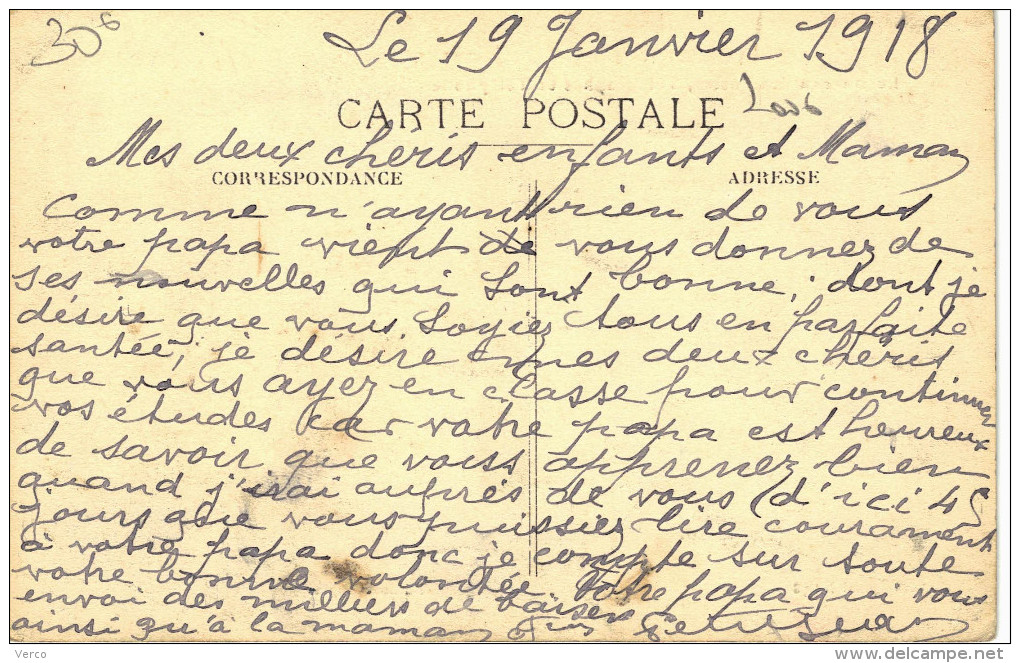 30c
Le 19 Janvier 1918
CARTE POSTALE
Mes deux chèris enfants et Maman
CORRESPONDANCE ADRESSE
comme n'ayant rien de vous
votre papa vient de vous donnez de
ses nouvelles qui sont bonne, dont je
désire que vous soyiez tous en parfaite
santée, je désire mes deux chèris
que vous ayez en classe pour continuer
vos études car votre papa est heureux
de savoir que vous apprenez bien
quand j'irai auprés de vous (d'ici 45
jours que vous puissiez lire courament
à votre papa donc je compte sur toute
votre bonne volontée Votre papa qui vous
envoi des milliers de baisers
ainsi qu'à la maman
Verco
delcampe.net